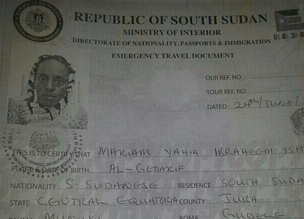 REPUBLIC OF SOUTH SUDAN
MINISTRY OF INTERIOR
DIRECTORATE OF NATIONALITY, PASSPORTS & IMMIGRATION
EMERGENCY TRAVEL DOCUMENT
OUR REF. NO.
YOUR REF. NO.
DATED: 24th/JUNE/
THIS IS TO CERTIFY THAT MARIAM YAHIA IBRAHEEM ISH
PLACE & DATE OF BIRTH AL-GEDARIF
NATIONALITY S-SUDANESE RESIDENCE SOUTH SUDA
STATE CENTRAL EQUATORIA COUNTY: JUBA
BOMA: GUDELE